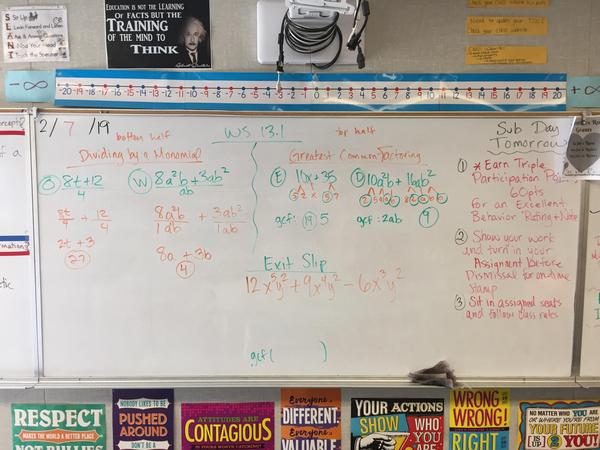 Sit Up
Lean Forward and Listen
Ask & Answer Questions
Nod Your Head
Track the Speaker
EDUCATION IS NOT THE LEARNING
OF FACTS BUT THE
TRAINING
OF THE MIND TO
THINK
-∞
-20 -19 -18 -17 -16 -15 -14 -13 -12 -11 -10 -9 -8 -7 -6 -5 -4 -3 -2 -1 0 1 2 3 4 5 6 7 8 9 10 11 12 13 14 15 16 17 18 19 20
+∞
2/7/19
bottom half
WS 13.1
top half
Dividing by a Monomial
O 8t+12/4
8t/4 + 12/4
2t + 3
27
W 8a²b + 3ab²/ab
8a²b/1ab + 3ab²/1ab
8a + 3b
4
Greatest Common Factoring
E 10x + 35
5 2 x 5 7
gcf: 19 5
gcf: 2ab 9
Exit Slip
12x⁵y² + 9x⁴y² - 6x³y²
gcf( )
Sub Day
Tomorrow
1 * Earn Triple
Participation
60pts
for an Excellent
Behavior Rating + Note
2 Show your work
and turn in your
Assignment before
Dismissal for on-time
stamp
3 Sit in assigned seats
and follow class rules
RESPECT
MAKES THE WORLD A BETTER PLACE
NOT BULLIES
NOBODY LIKES TO BE
PUSHED
AROUND
DON'T BE A
ATTITUDES ARE
CONTAGIOUS
IS YOURS WORTH CATCHING?
Everyone is
DIFFERENT.
Everyone is
VALUABLE
YOUR ACTIONS
SHOW WHO
YOU ARE
WRONG IS
WRONG!
RIGHT
NO MATTER WHO YOU ARE
OR WHERE YOU'RE FROM
YOUR FUTURE
IS UP 2 YOU!